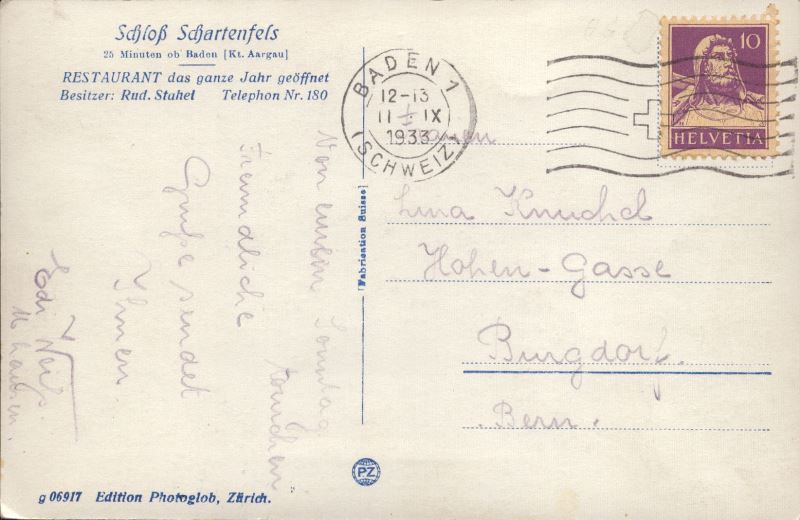 Schloß Schartenfels
25 Minuten ob Baden [Kt. Aargau]
RESTAURANT das ganze Jahr geöffnet
Besitzer: Rud. Stahel Telephon Nr. 180
Von einem Sonntag
Freundliche
Grüße sendet
Ihnen
Edi
[Fabrication Suisse]
BADEN 1
12-13
11. IX
1933
(SCHWEIZ)
10
HELVETIA
Lina Knuchel
Hohen-Gasse
Burgdorf.
Bern.
PZ
g 06917 Edition Photoglob, Zürich.